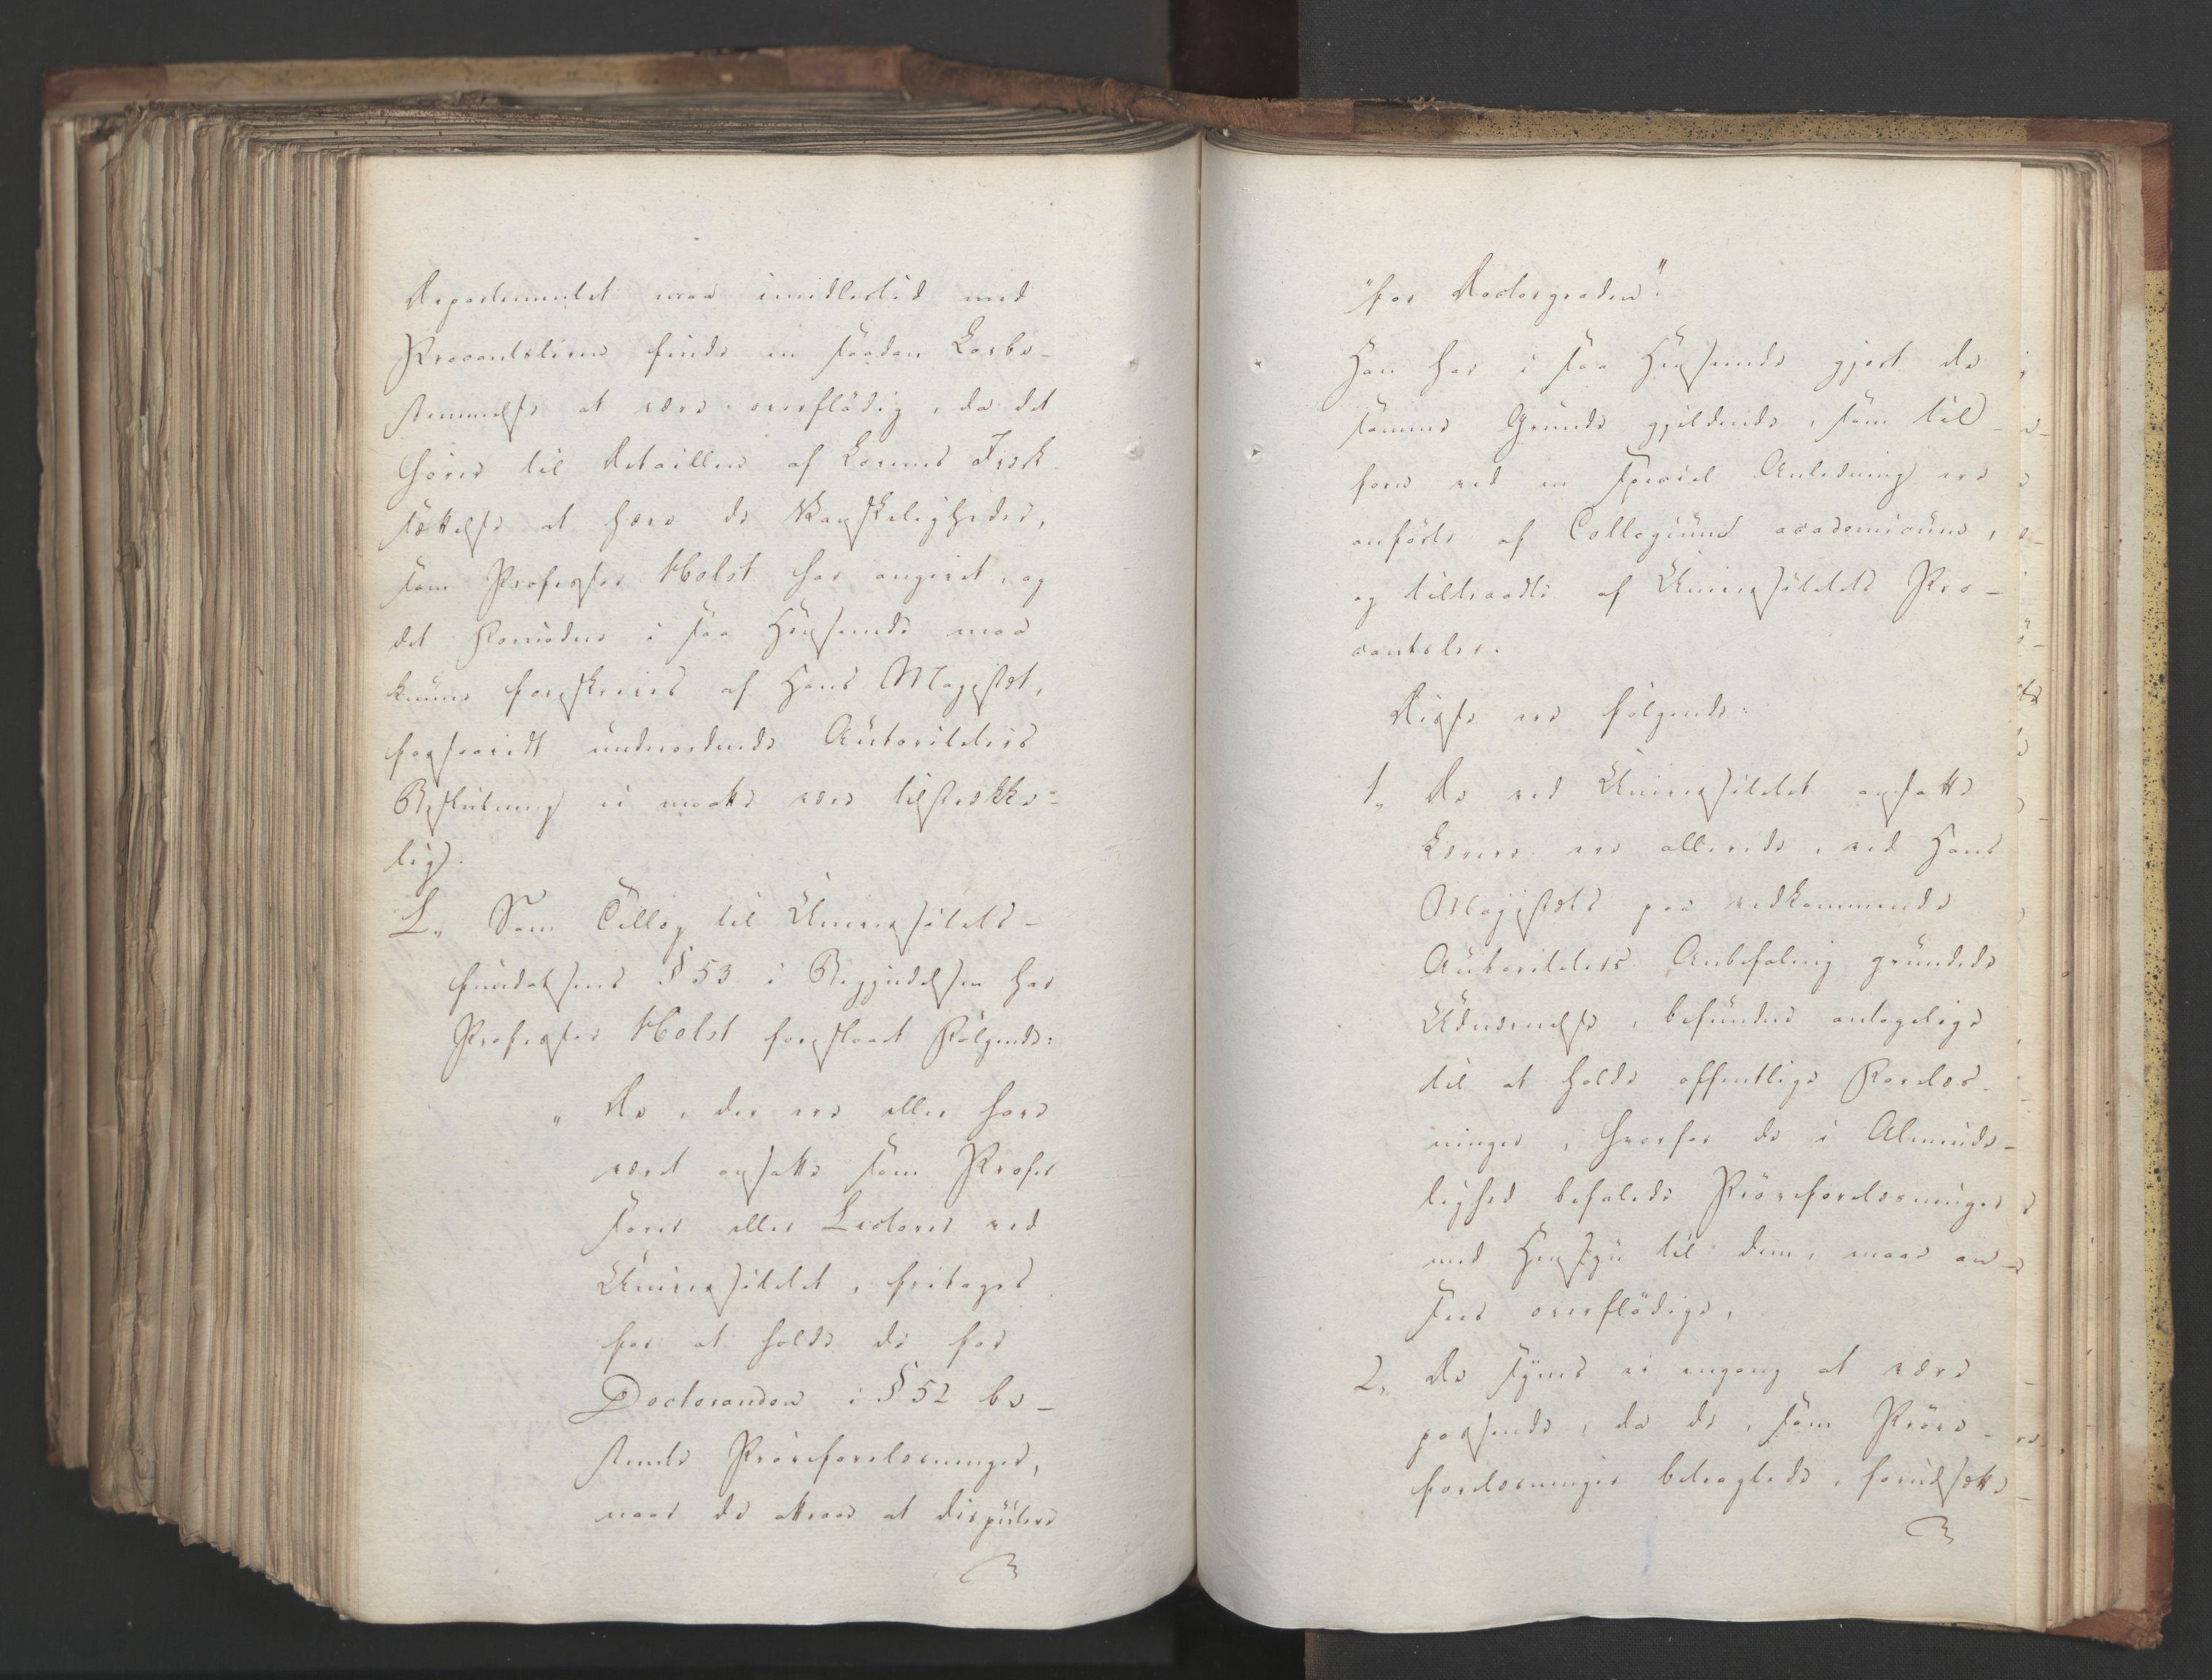 Departementet maa imidlertid med
Procantsleren finde en saadan Lovbe-
stemmelse at være overflødig, da det
hører til Detaillen af Lovens Iværk
sættelse at hæve de Vanskeligheder,
som Professor Holst har angivet, og
det Fornødne i saa Henseende maa
kunne foreskrives af Hans Majestæt,
forsaavidt underordnede Autoriteters
Beslutning ei maatte være tilstrække-
lig.
L. Som Tillæg til Universitets-
fundatsens § 53 i Begyndelsen har
Professor Holst foreslaaet Følgende:
" De, der ere eller have
været ansatte som Profes
sorer eller Lectorer ved
Universitetet, fritages
for at holde de for
Doctoranden i § 52 be-
stemte Prøveforelæsninger,
naar de attraae at disputere
"for Doctorgraden".
Han har i saa Henseende gjort de
samme Grunde gjeldende, som til-
forn ved en speciel Anledning ere
anførte af Collegium academicum,
og tiltraadte af Universitetets Pro-
cantsler.
Disse ere følgende:
1. De ved Universitetet ansatte
Lærere ere allerede, ved Hans
Majestæts paa vedkommende
Autoriteters Anbefaling grundede
Udnævnelse, befundne antagelige
til at holde offentlige Forelæs-
ninger, hvorfor de i Alminde-
lighed befalede Prøveforelæsninger
med Hensyn til dem, maae an-
sees overflødige.
2. De synes ei engang at være
passende, da de, som Prøve-
forelæsninger betragtede, forudsætte